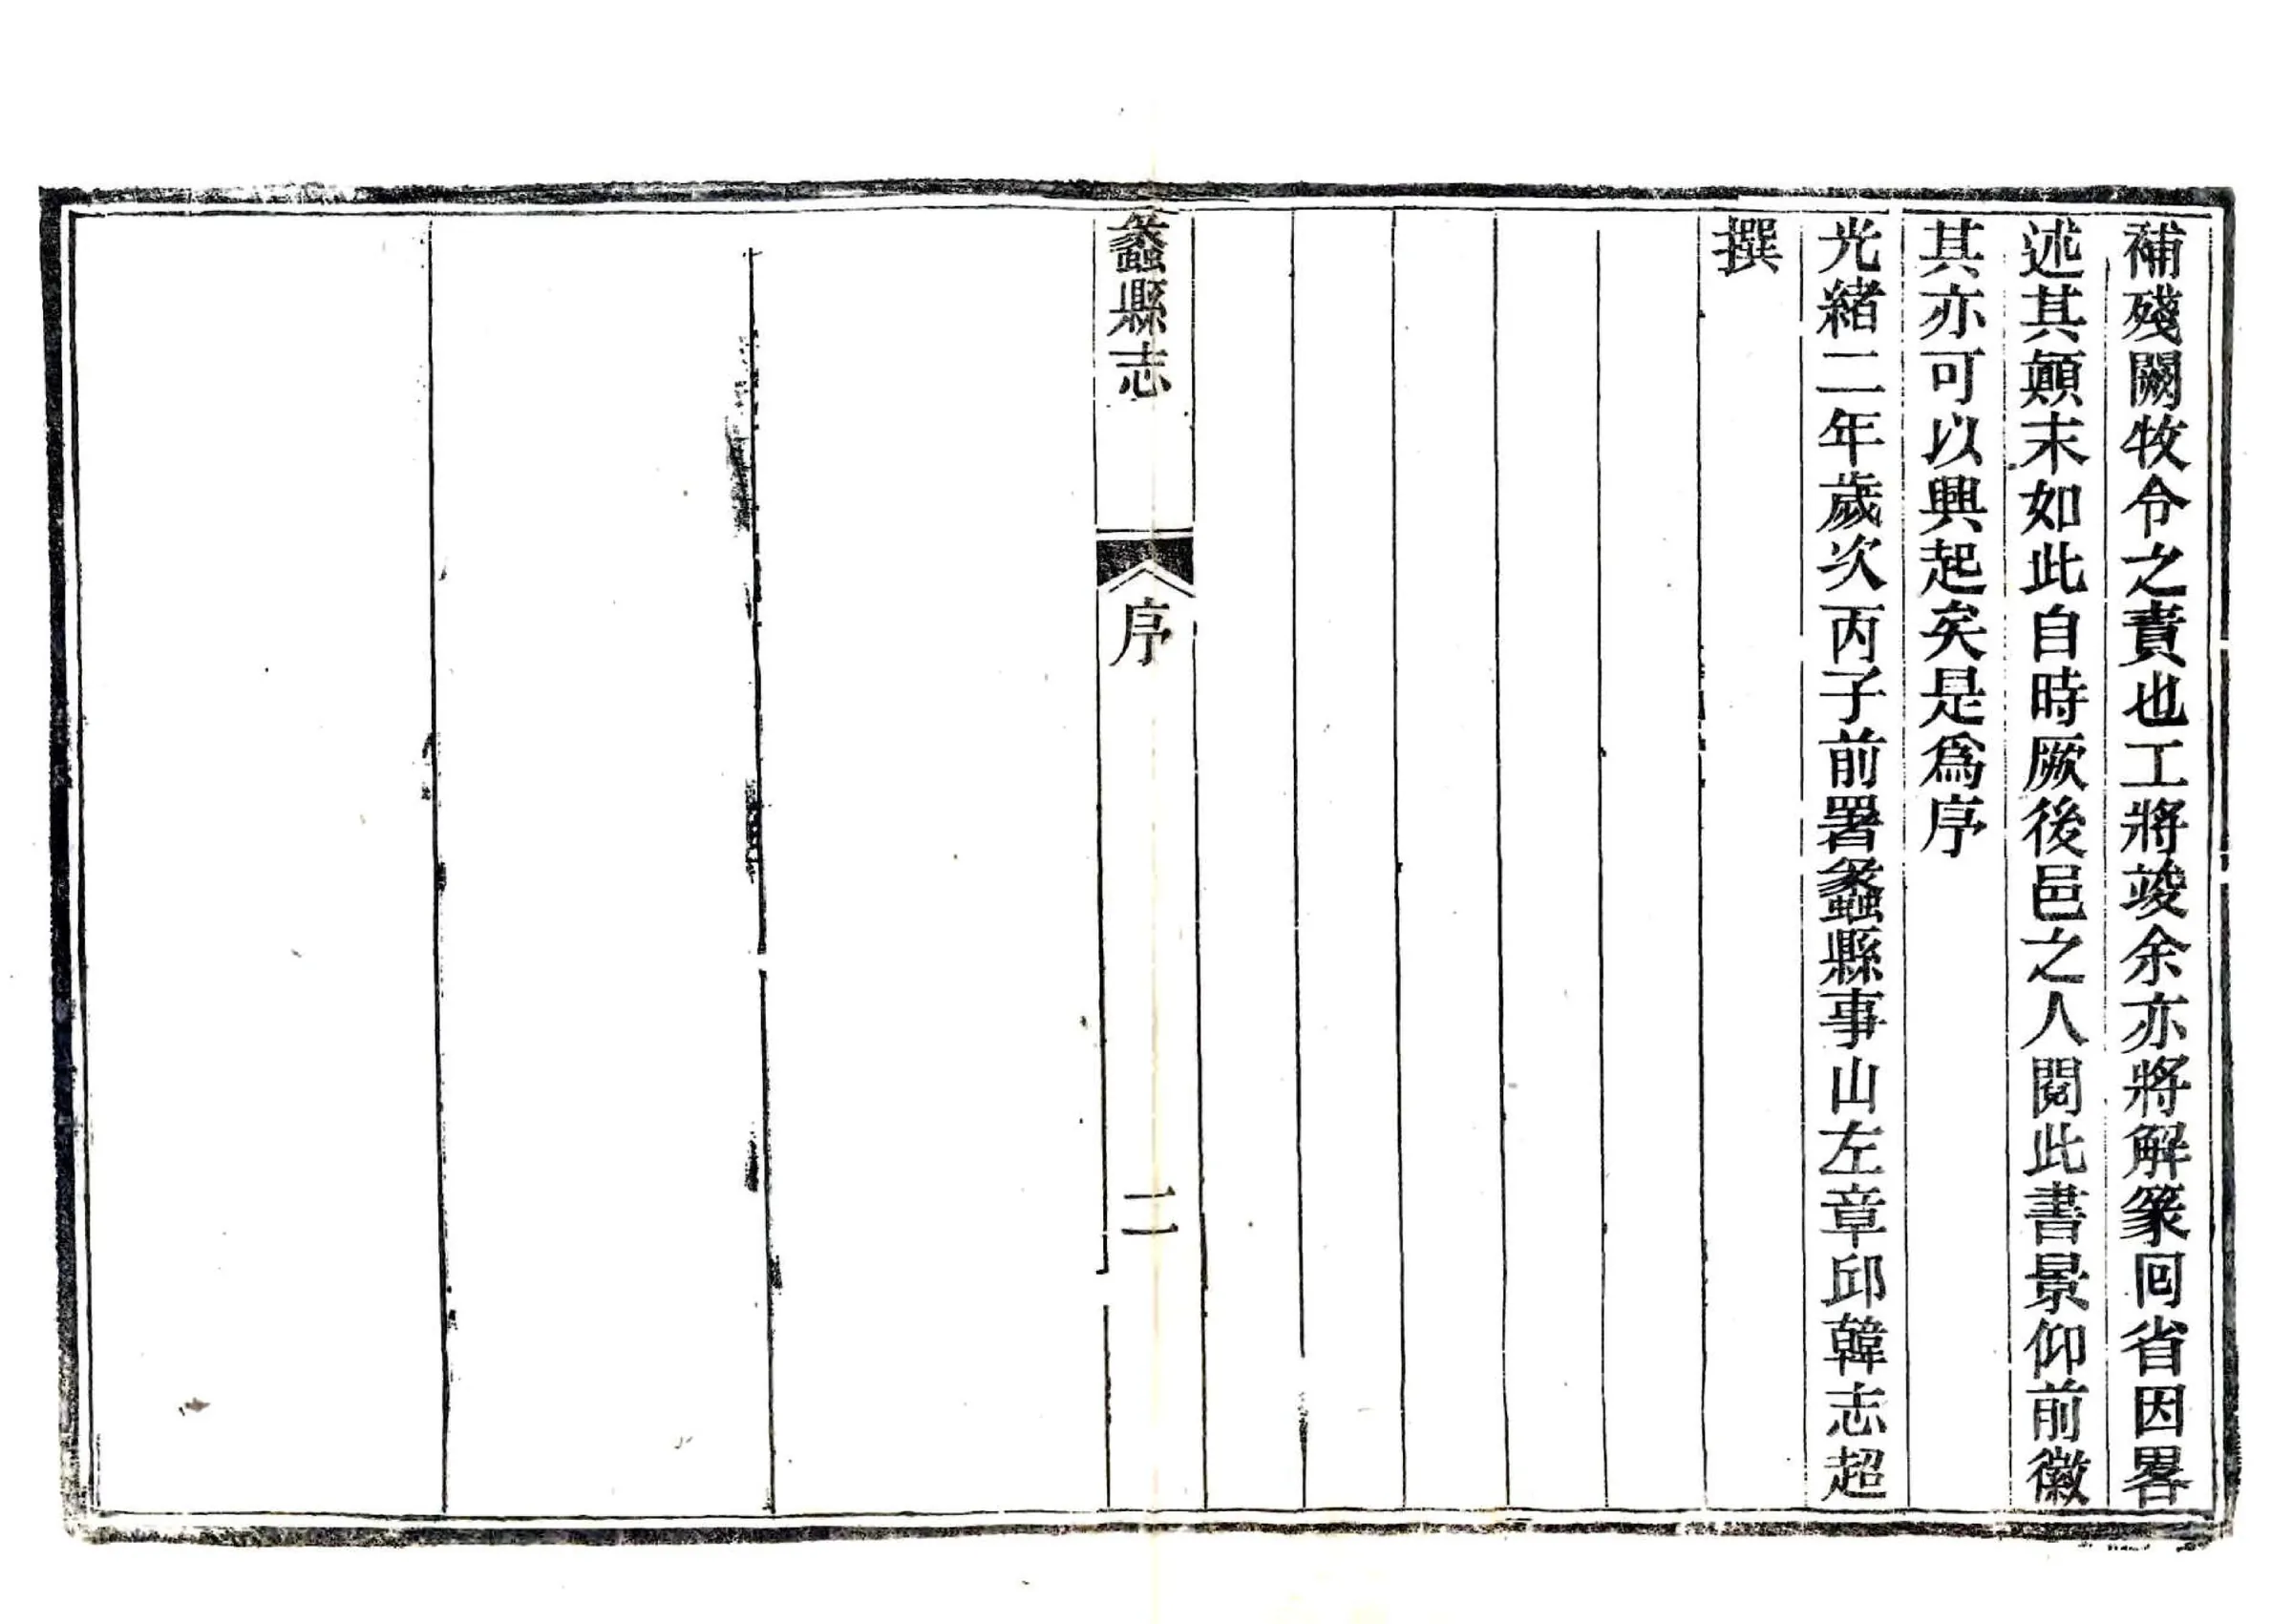 補殘闕牧令之責也工將竣余亦將解篆囘省因畧
述其顛末如此自時厥後邑之人閱此書景仰前徽
其亦可以興起矣是爲序
光緒二年歲次丙子前署蠡縣事山左章邱韓志超
撰
蠡縣志
序
二